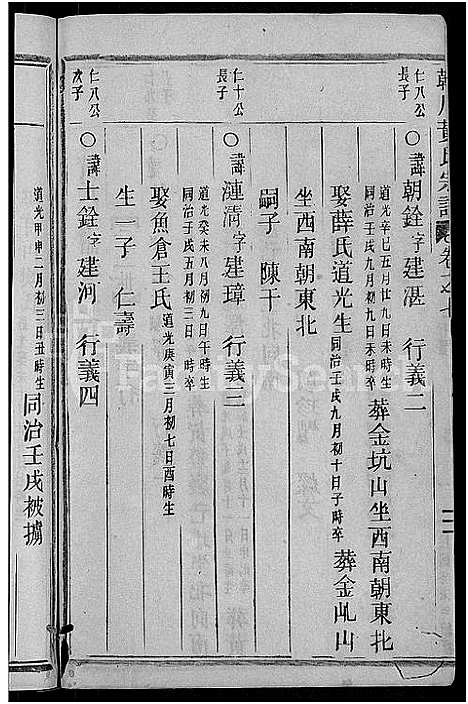 黃氏宗譜
仁八公長子
○諱朝銓字建湛 行義二
道光辛巳五月廿九日未時生
同治壬戌九月初九日未時卒
葬金坑山坐西南朝東北
娶薛氏道光生
同治壬戌九月初十日子時卒
葬金乢山
坐西南朝東北
嗣子 陳干
仁十公長子
○諱漣清字建璋 行義三
道光癸未八月初九日午時生
同治壬戌五月初三日 時卒
娶魚倉王氏
道光庚寅三月初七日酉時生
生一子 仁壽
仁八公次子
○諱士銓字建河 行義四
道光甲申二月初三日丑時生
同治壬戌被擄
FamilySearch